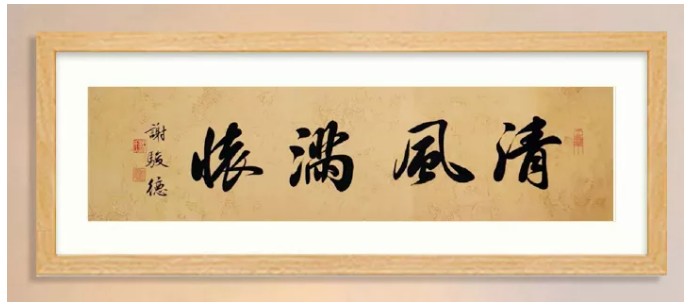 清風滿懷
謝駿德